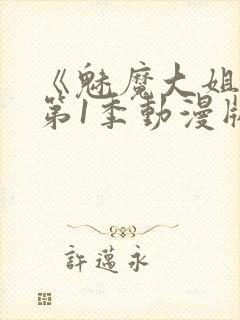 《魅魔大姐
第1季動漫版
許邁永